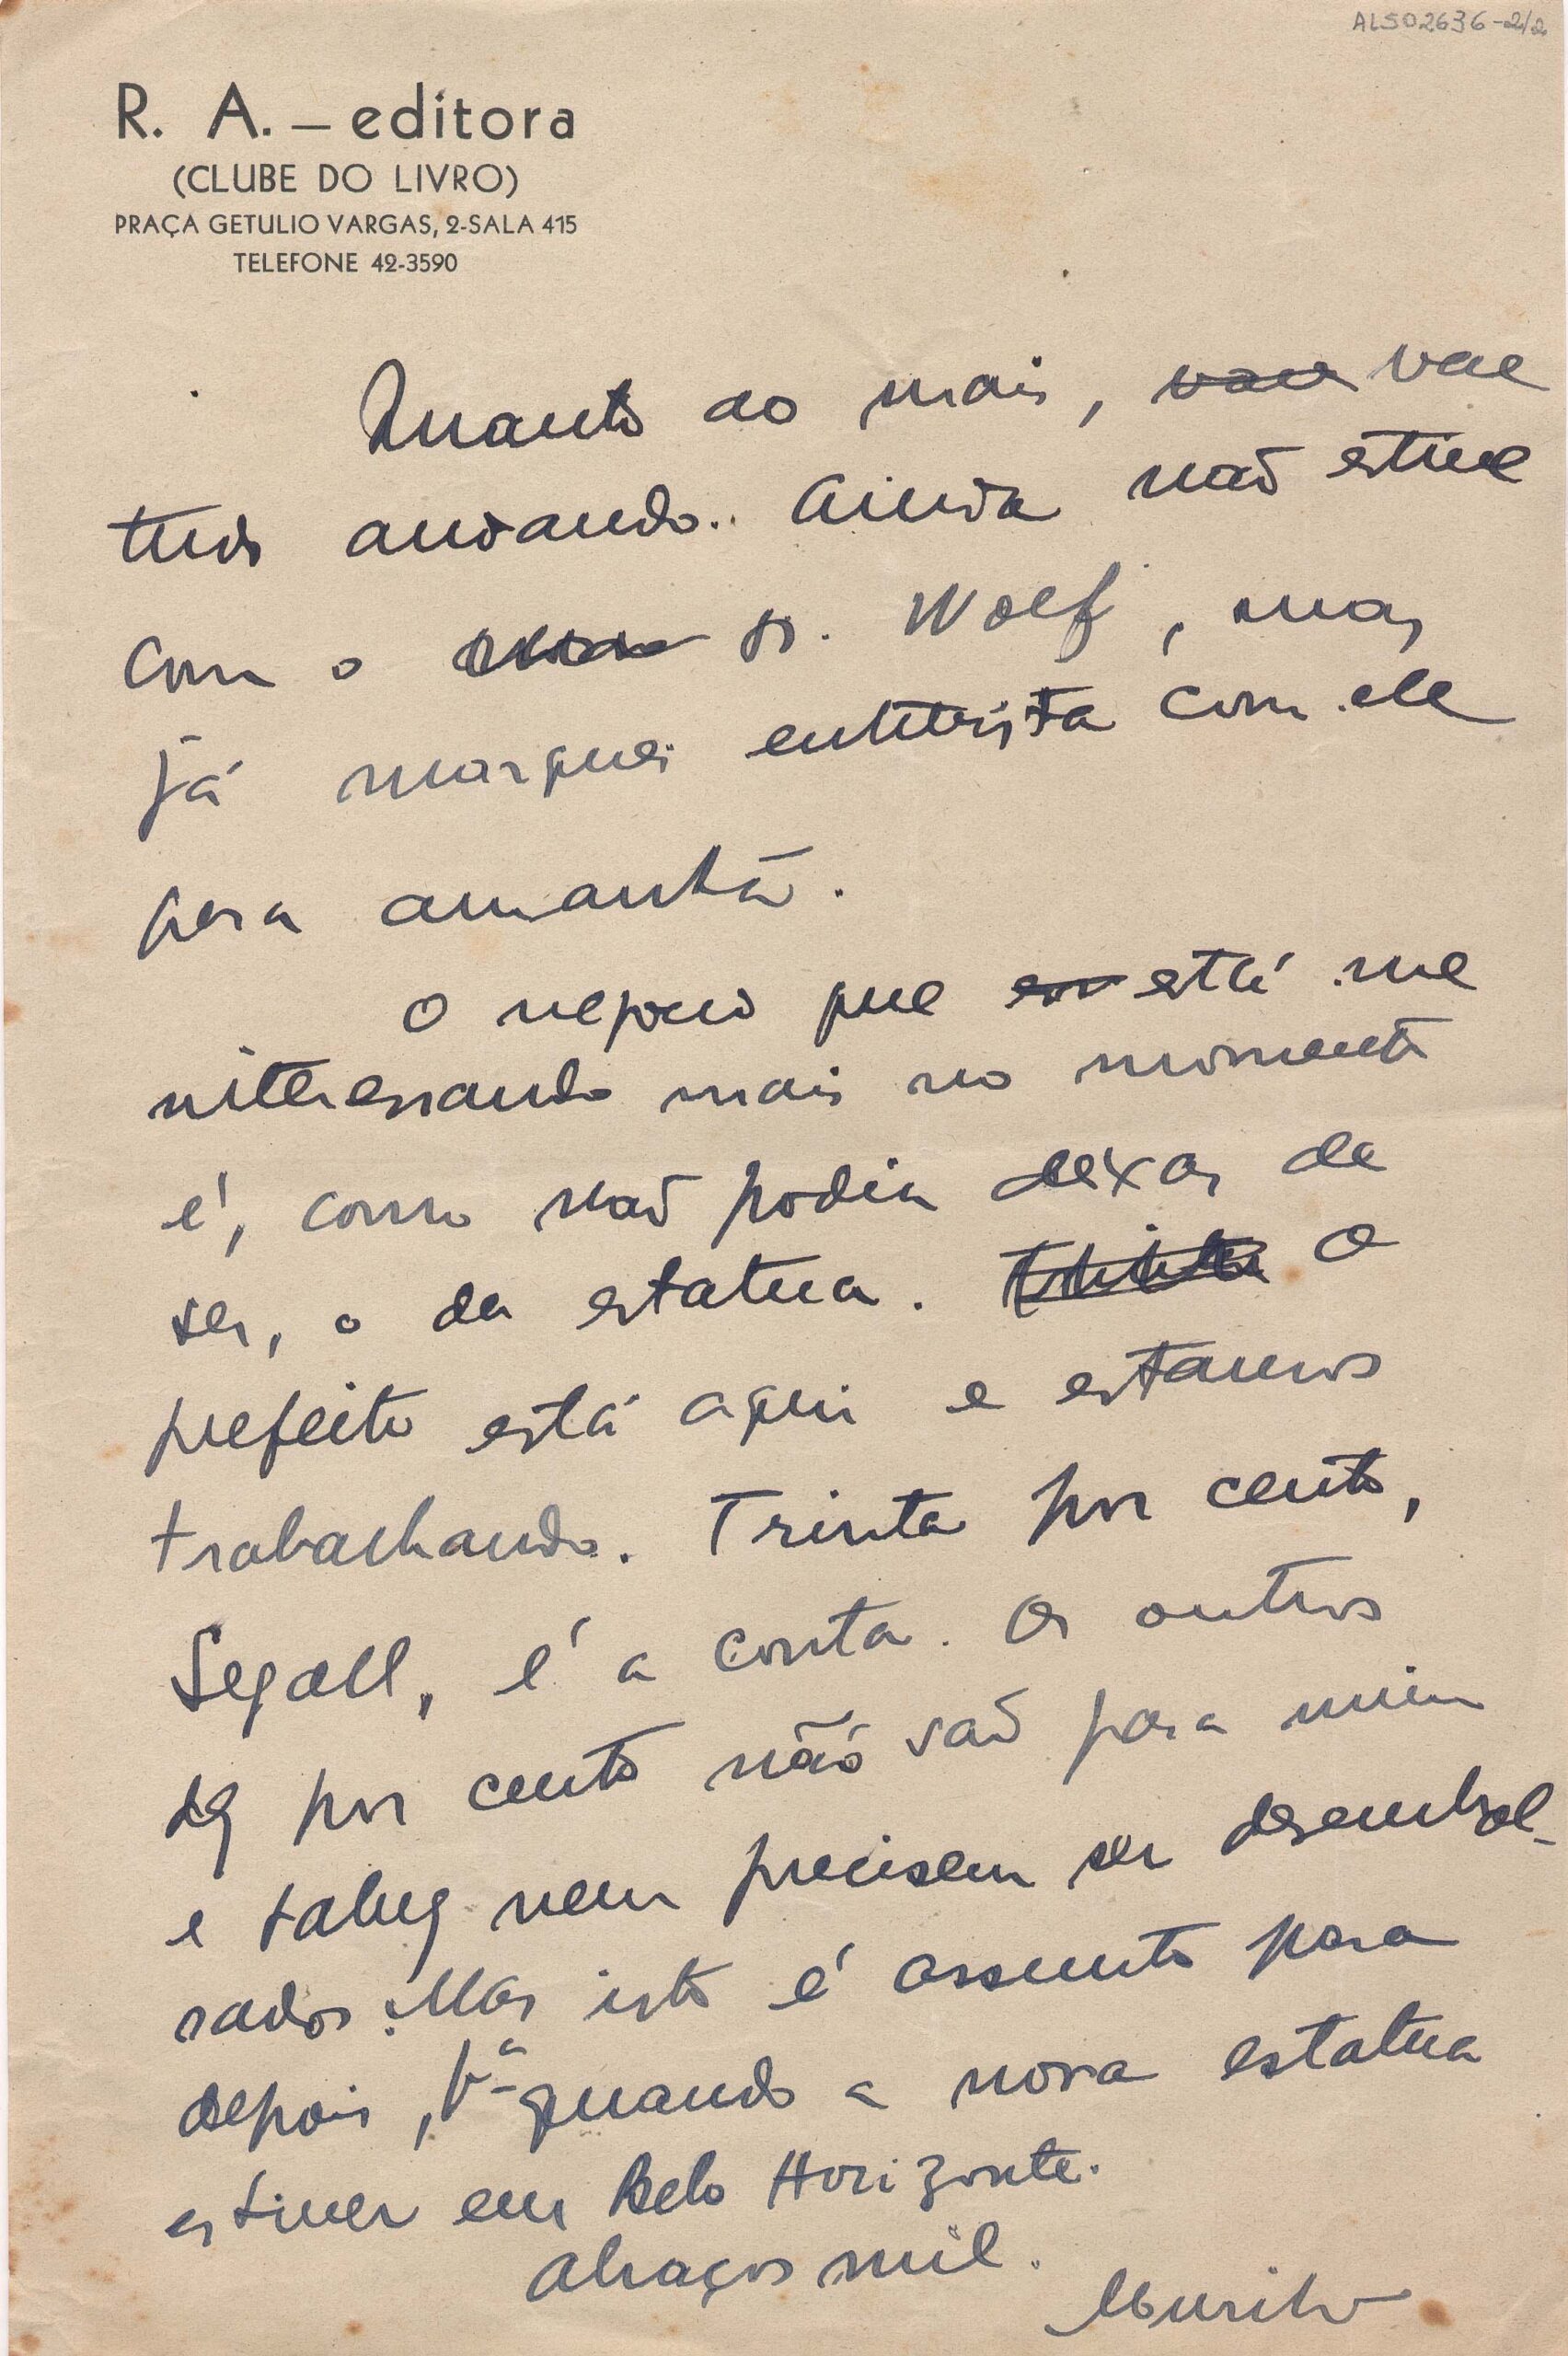 ALS02636-2/2
R. A. — editora
(CLUBE DO LIVRO)
PRAÇA GETULIO VARGAS, 2-SALA 415
TELEFONE 42-3590
Quanto ao mais, vae
tudo andando. Ainda não estive
com o sr. Wolf, mas
já marquei entrevista com ele
para amanhã.
O negocio que está me
interessando mais no momento
é, como não podia deixar de
ser, o da estatua. O
prefeito está aqui e estamos
trabalhando. Trinta por cento,
Segall, é a conta. Os outros
dez por cento não são para mim
e talvez nem precisem ser desembol-
sados. Mas isto é assunto para
depois, quando a nova estatua
estiver em Belo Horizonte.
Abraços mil.
Murilo